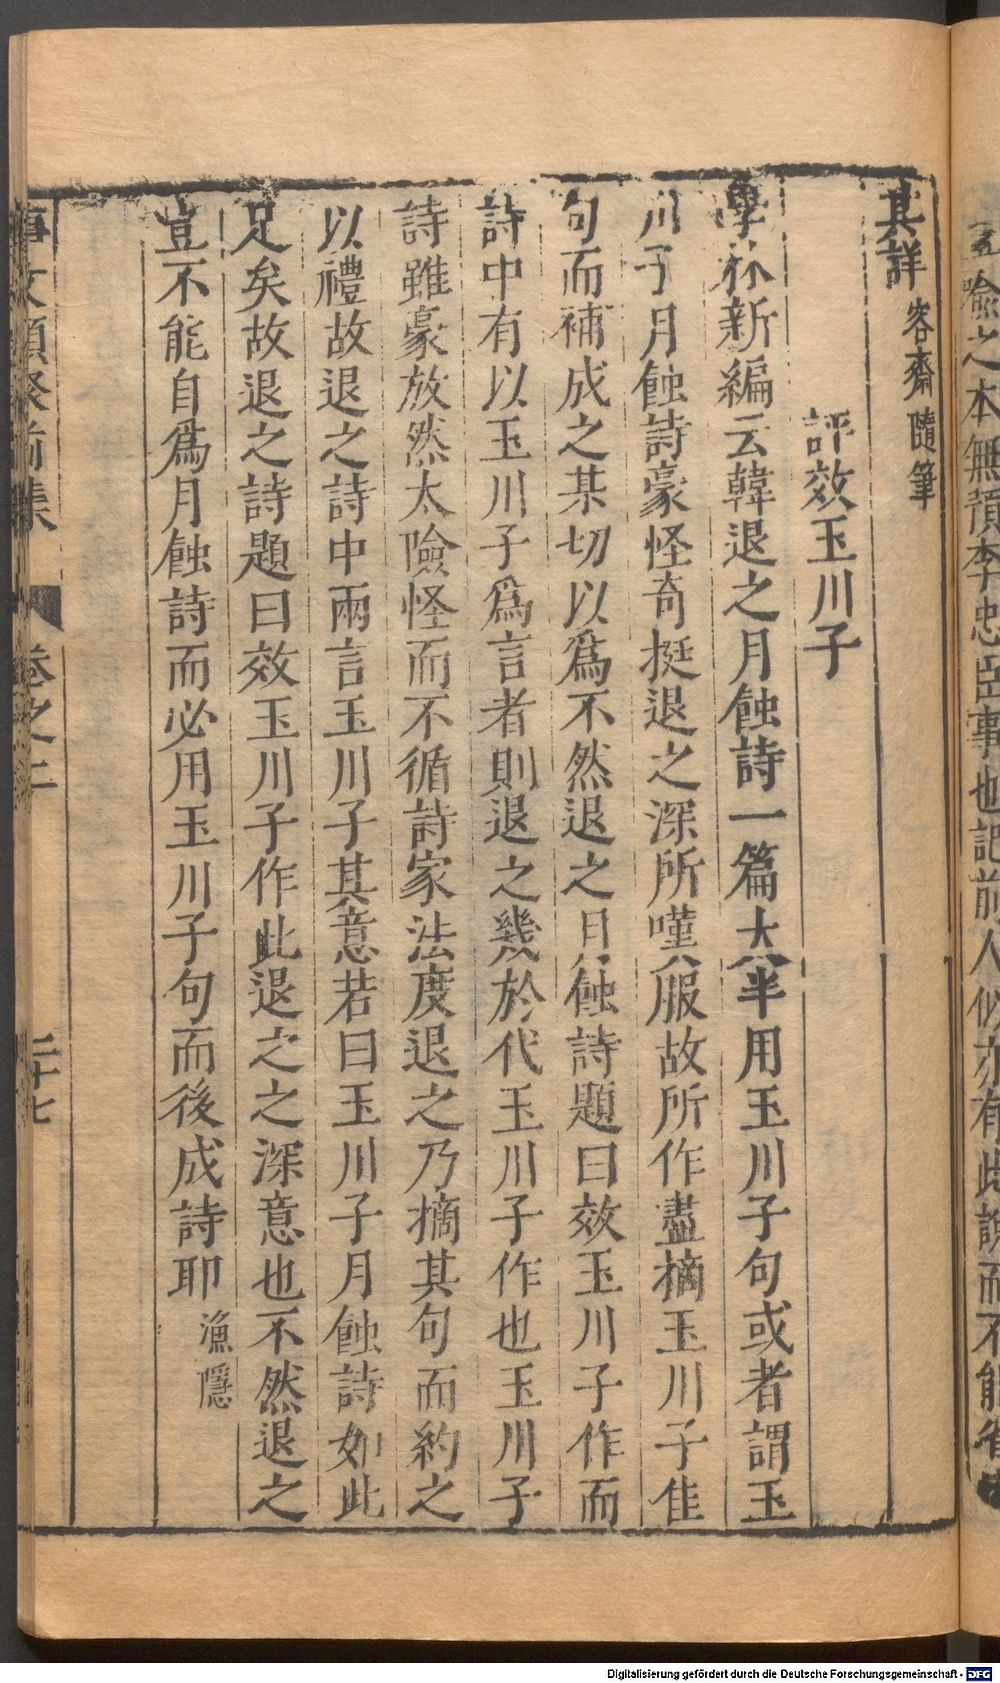 其詳 容齋隨筆
評效玉川子
學林新編云韓退之月蝕詩一篇太半用玉川子句或者謂玉
川子月蝕詩豪怪奇挺退之深所嘆服故所作盡摘玉川子佳
句而補成之某切以爲不然退之月蝕詩題曰效玉川子作而
詩中有以玉川子爲言者則退之幾於代玉川子作也玉川子
詩雖豪放然太險怪而不循詩家法度退之乃摘其句而約之
以禮故退之詩中兩言玉川子其意若曰玉川子月蝕詩如此
足矣故退之詩題曰效玉川子作此退之之深意也不然退之
豈不能自爲月蝕詩而必用玉川子句而後成詩耶 漁隱
事文類聚前集 卷之二 二十七
之本無預李忠臣事也記前人似亦有此說而不能省
Digitalisierung gefördert durch die Deutsche Forschungsgemeinschaft - DFG